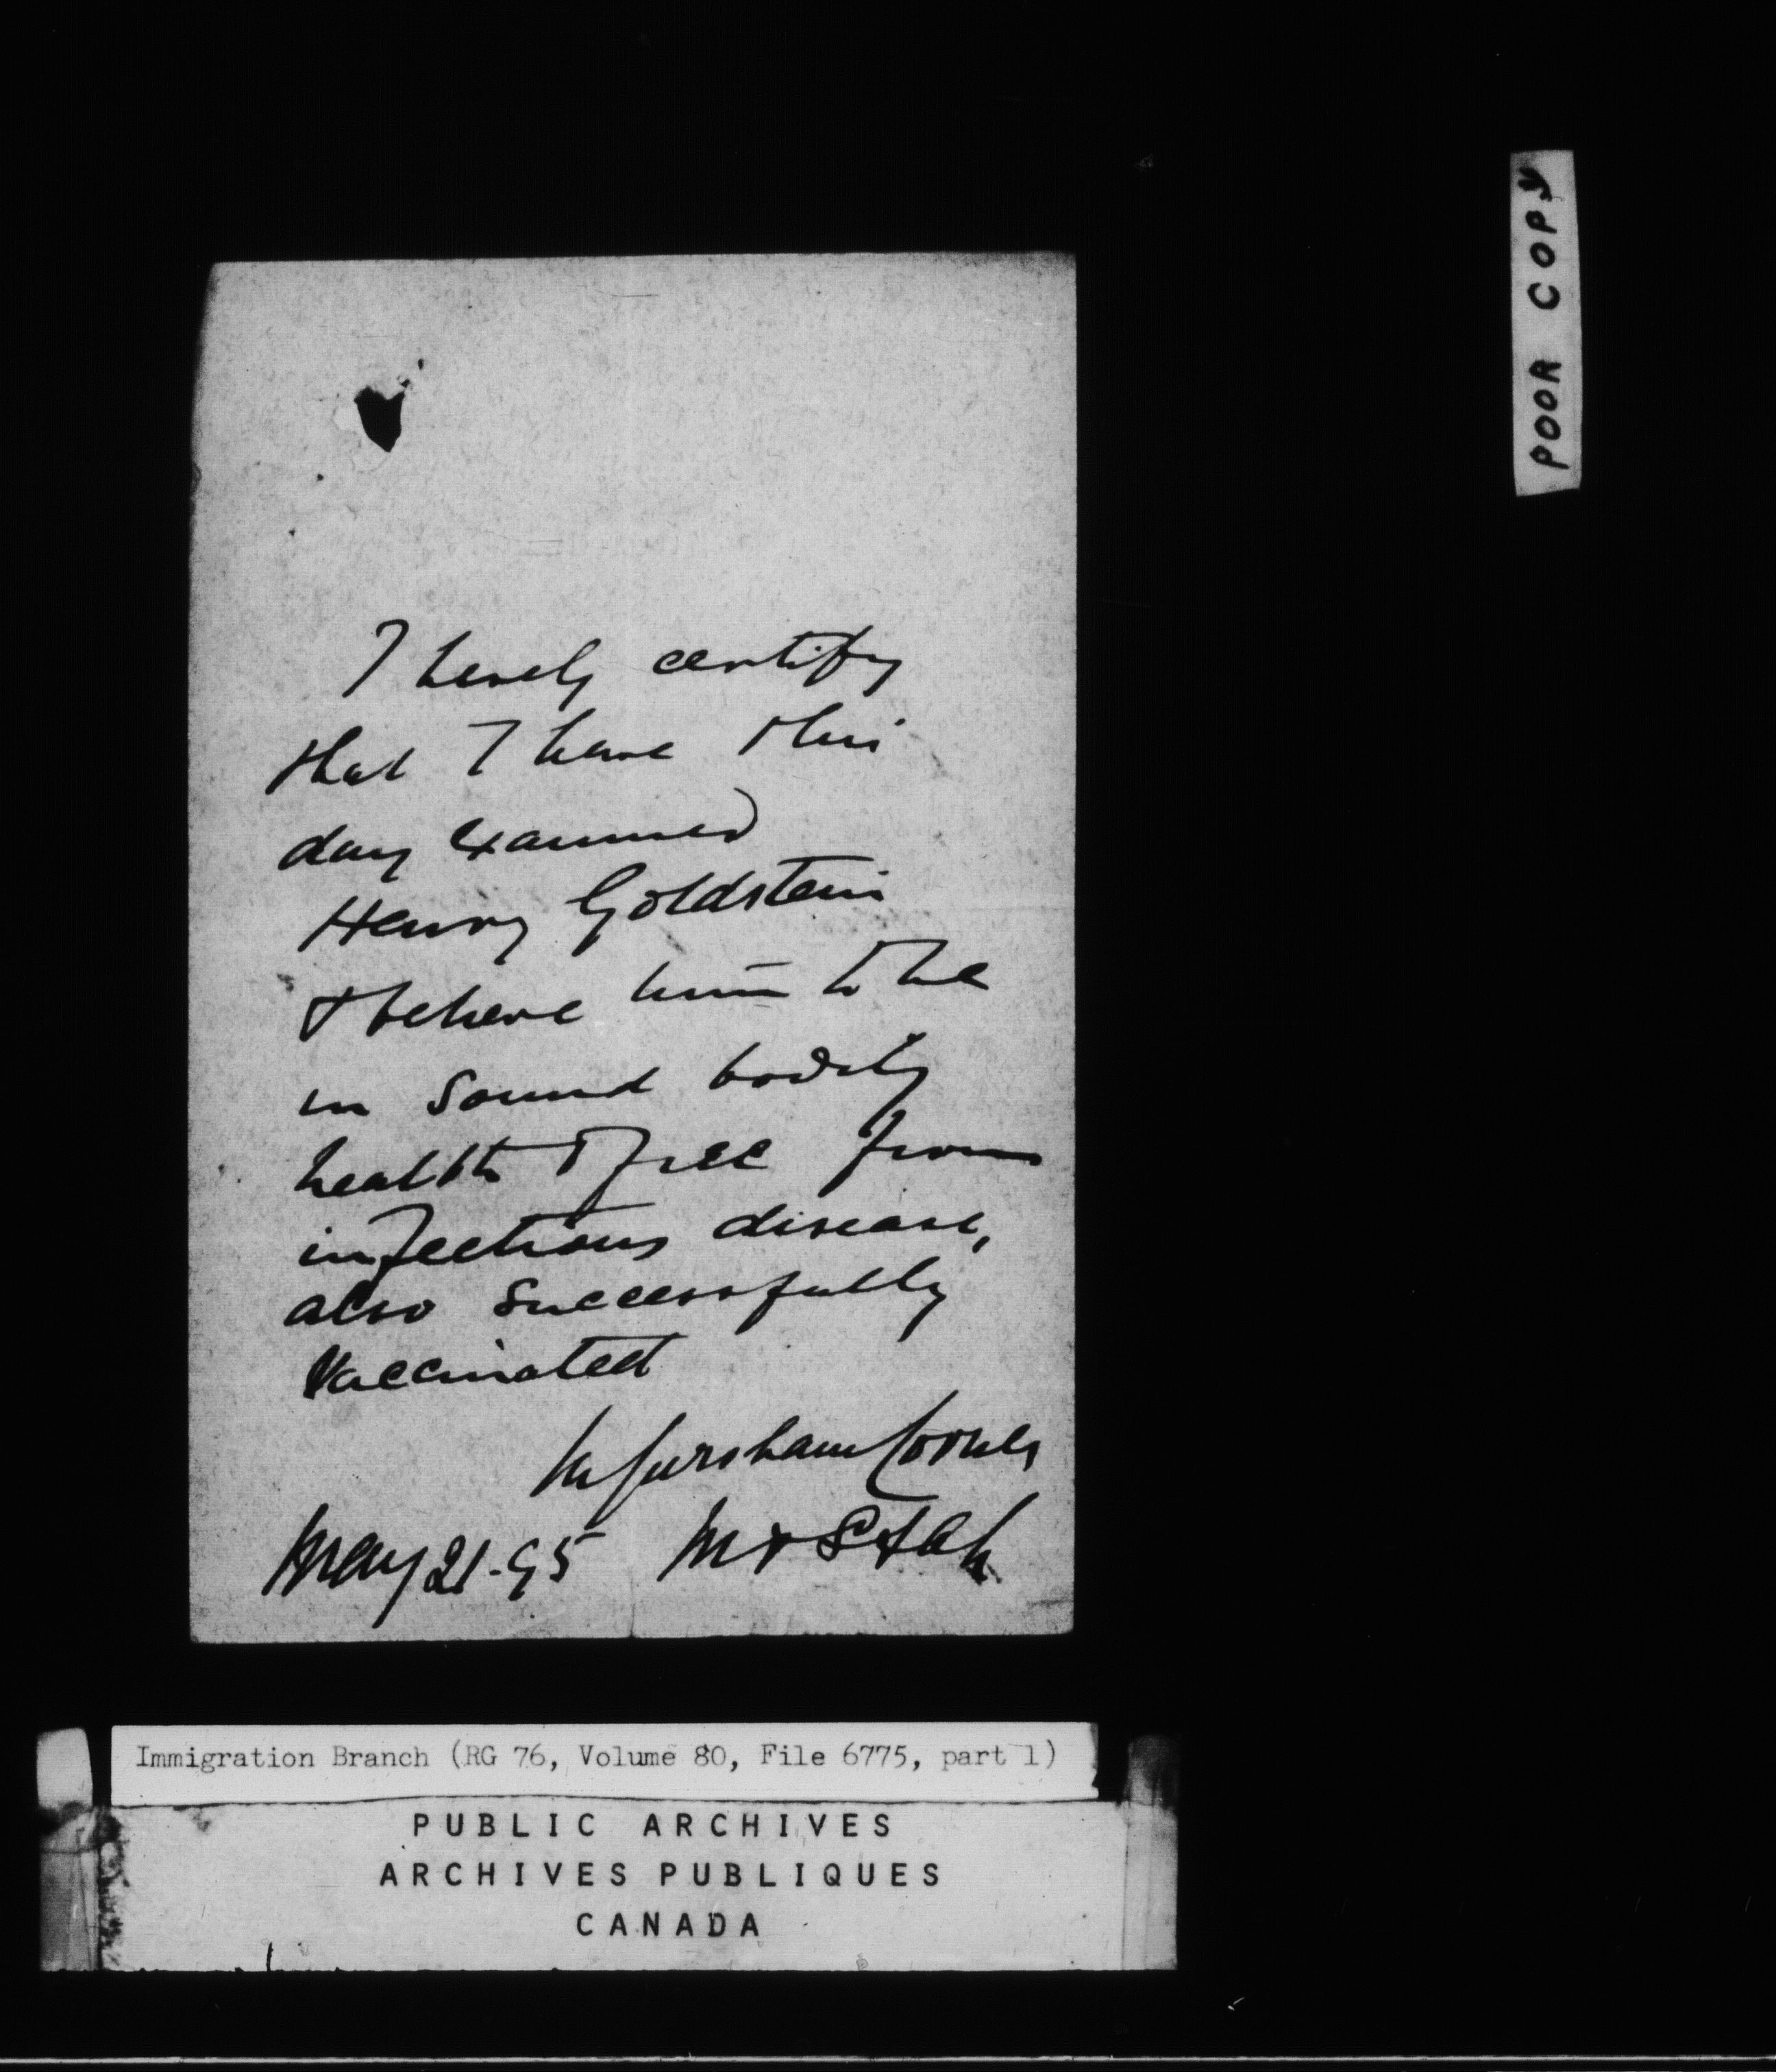 I hereby certify
that I have this
day examined
Henry Goldstein
& believe him to be
in sound bodily
health & free from
infectious disease,
also successfully
Vaccinated
May 21-95
POOR COPY
Immigration Branch (RG 76, Volume 80, File 6775, part 1)
PUBLIC ARCHIVES
ARCHIVES PUBLIQUES
CANADA